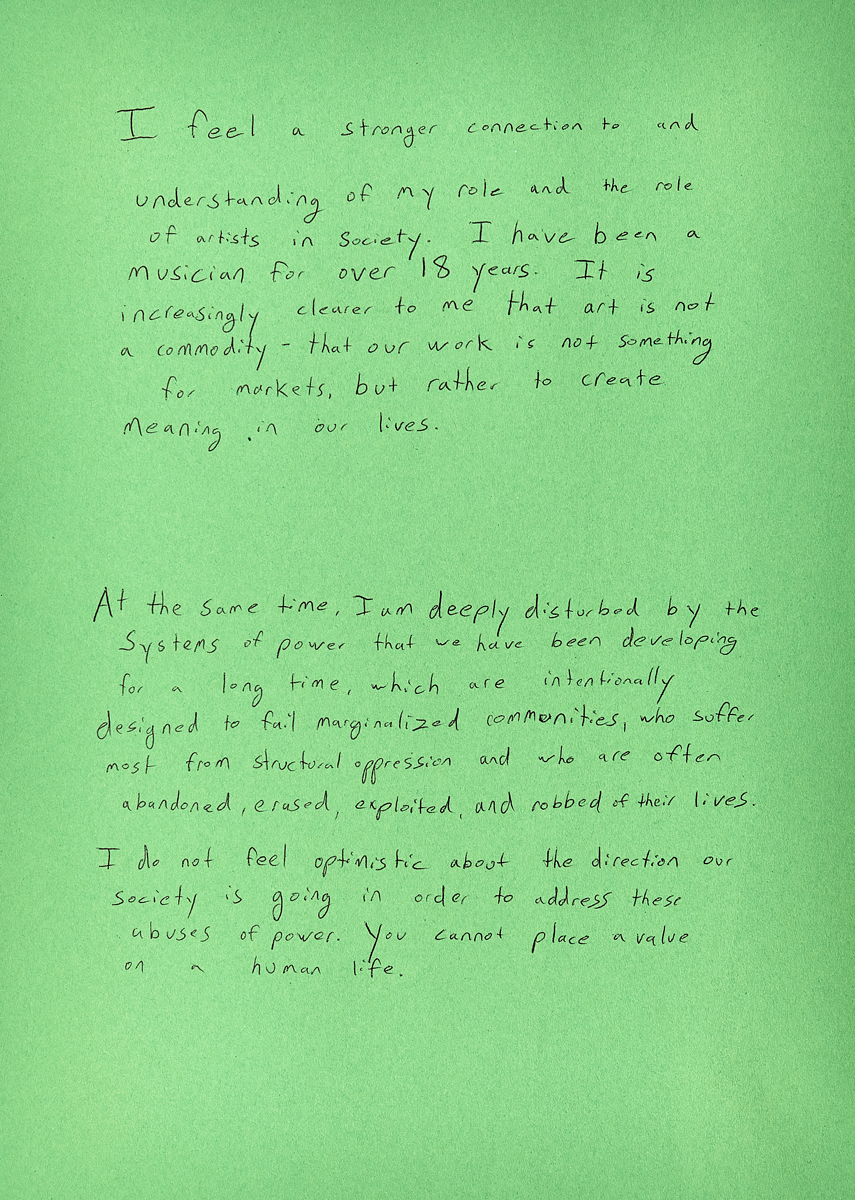 I feel a stronger connection to and
understanding of my role and the role
of artists in society. I have been a
musician for over 18 years. It is
increasingly clearer to me that art is not
a commodity - that our work is not something
for markets, but rather to create
meaning in our lives.
At the same time, I am deeply disturbed by the
systems of power that we have been developing
for a long time, which are intentionally
designed to fail marginalized communities, who suffer
most from structural oppression and who are often
abandoned, erased, exploited, and robbed of their lives.
I do not feel optimistic about the direction our
society is going in order to address these
abuses of power. You cannot place a value
on a human life.